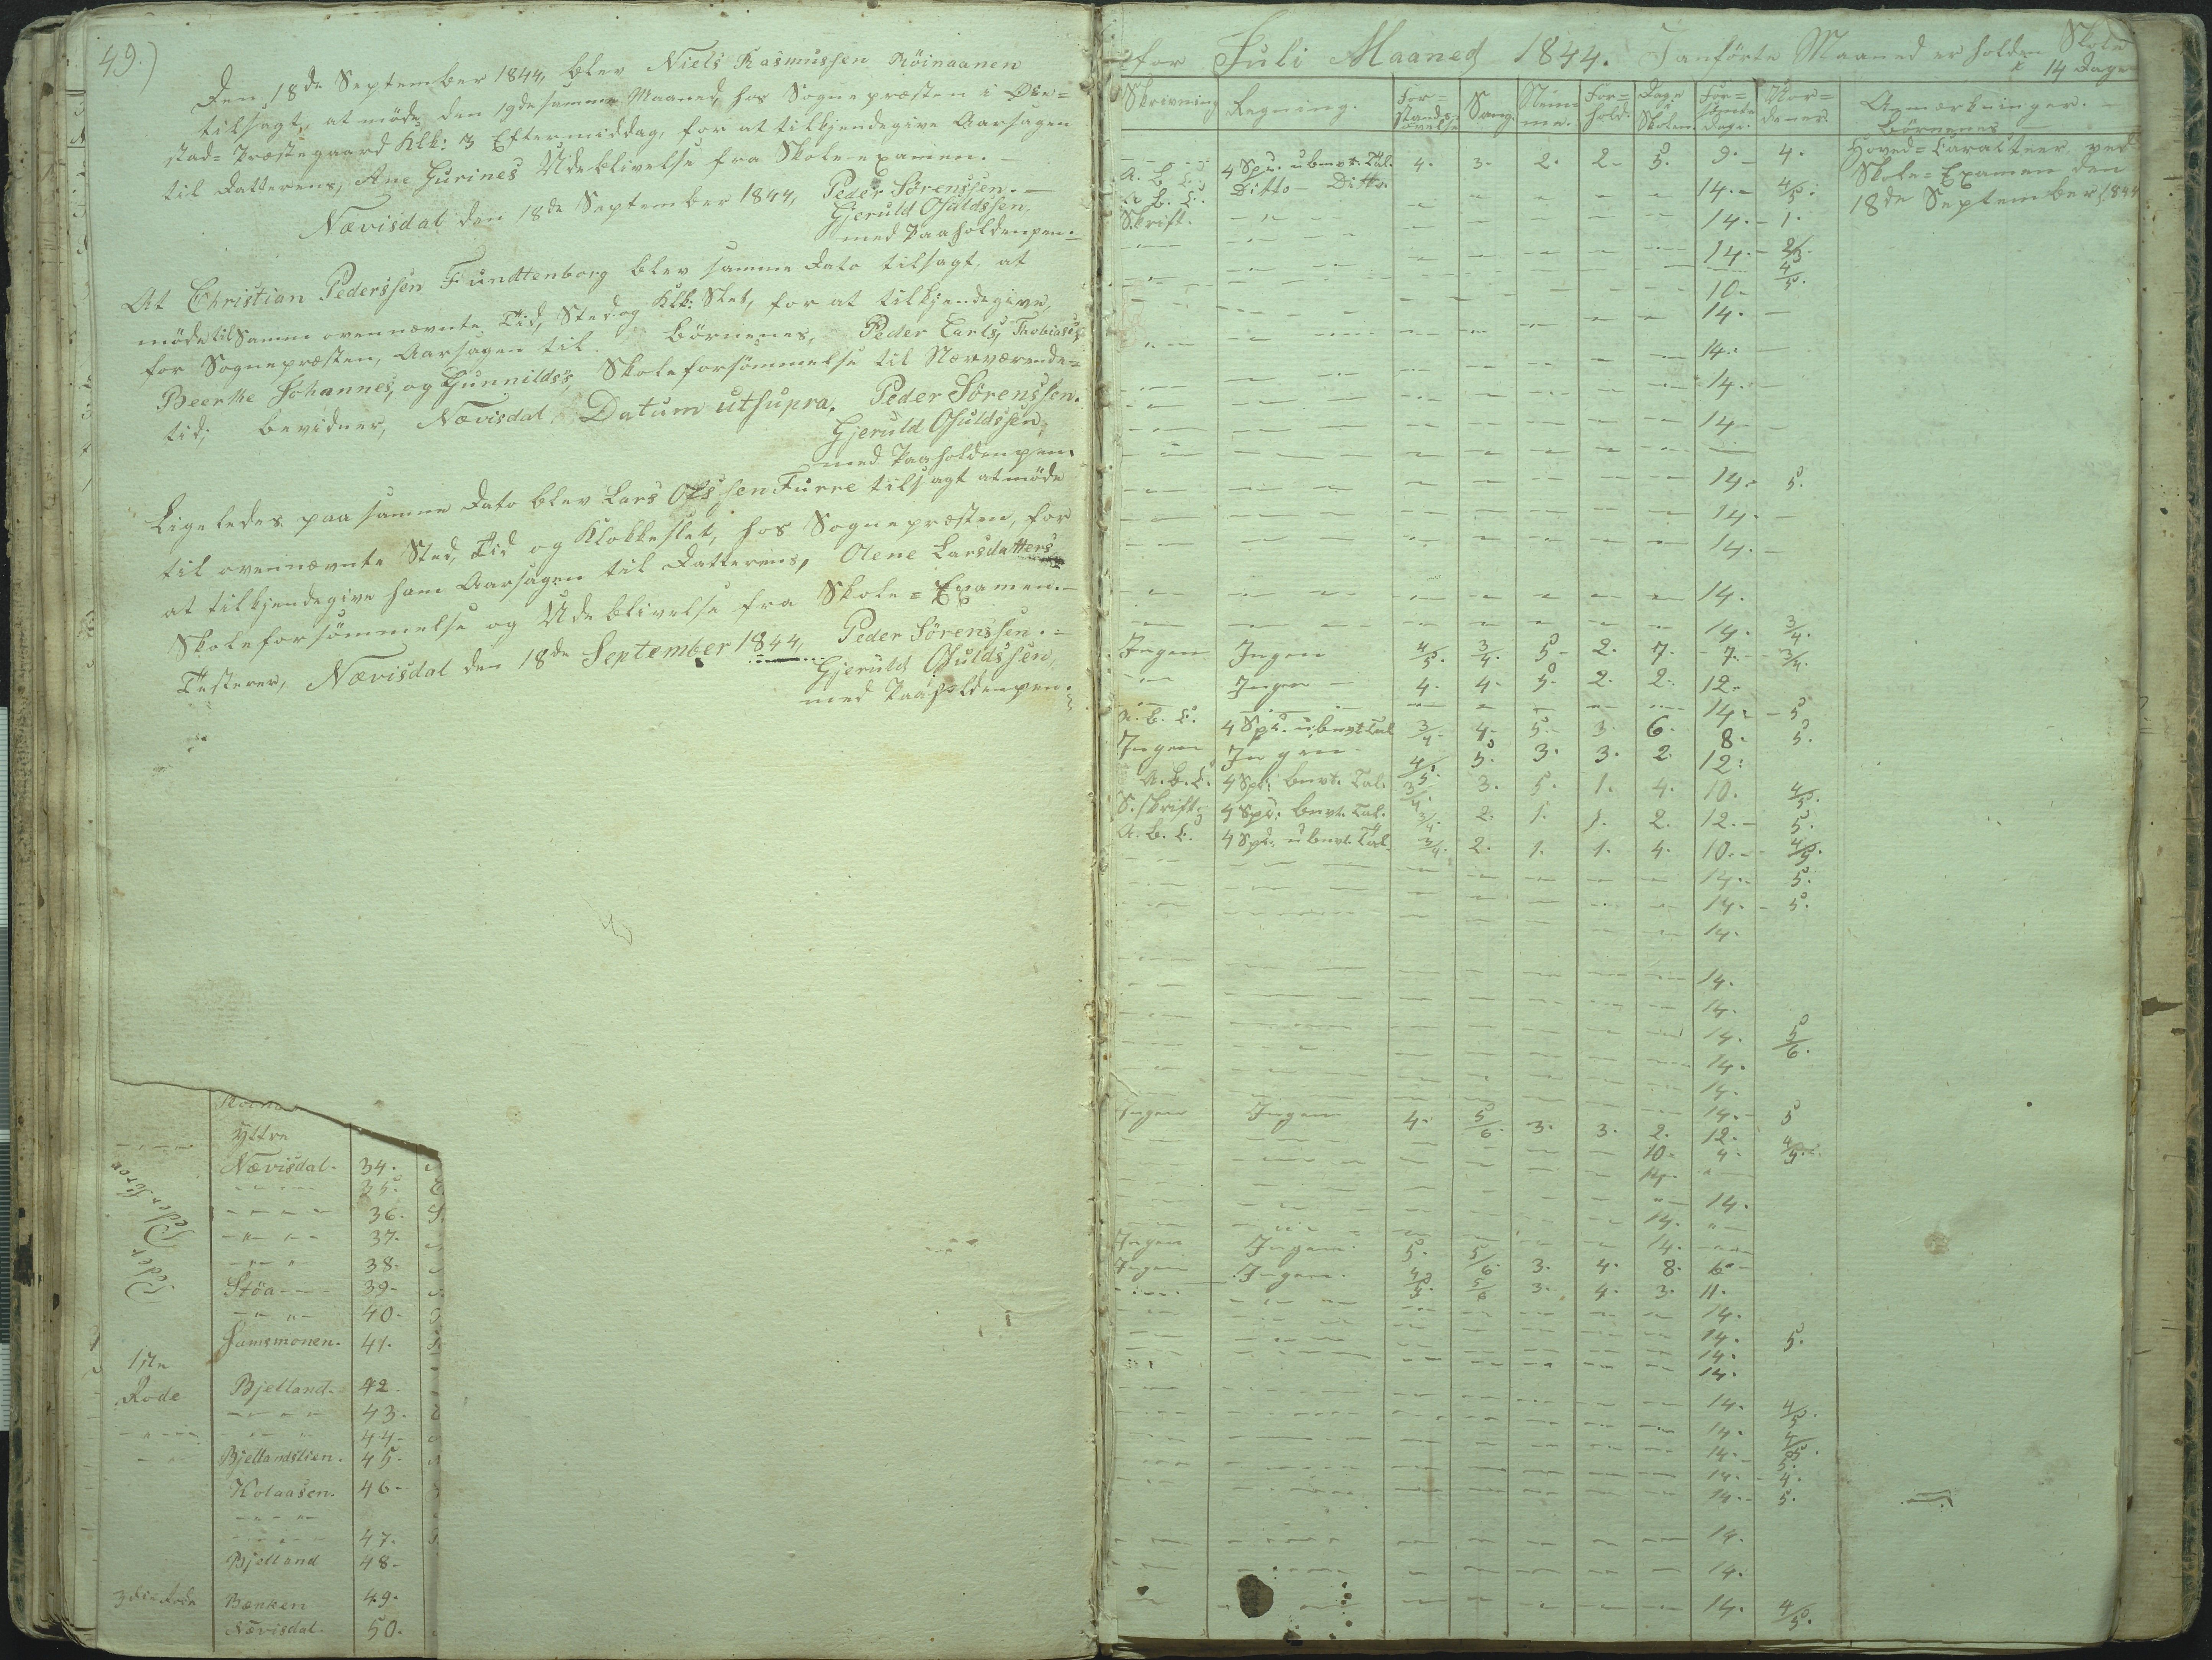 49.)
Den 18de September 1844, blev Niels Rasmussen Röinaanen
tilsagt, at møde den 19de samme Maaned, hos Sognepræsten i
stad= Præstegaard Klk: 3 Eftermiddag, for at tilkjendegive Aarsagen
til Datterens, Ane Gurines Udeblivelse fra Skole-examen. –
Nævisdal den 18de September 1844, Peder Sörenssen. –
Gjeruld Osuldssen,
med Paaholdenpen. –
At Christian Pederssen Fundtenborg blev samme Dato tilsagt, at
møde til Samm ovennævnte Tid, Sted og Klk: Slet, for at tilkjendegive,
for Sognepræsten, Aarsagen til Börnenes, Peder Earls, Thobias's,
Beerthe Johannes, og Gunnilds's Skoleforsömmelse til Nærværende=
tid; bevidner, Nævisdal. Datum utsupra. Peder Sörenssen.
Gjeruld Osuldssen,
med Paaholdenpen.
Ligeledes paa samme Dato blev Lars Olssen Furre tilsagt at møde
til ovennævnte Sted, Tid og Klokkeslet, hos Sognepræsten, for
at tilkjendegive ham Aarsagen til Datterens, Olene Larsdatters
Skoleforsömmelse og Udeblivelse fra Skole=Examen. –
Testerer, Nævisdal den 18de September 1844, Peder Sörenssen. –
Gjeruld Osuldssen,
med Paaholdenpen.
Yttre
Nævisdal. 34.
35.
36.
37.
38.
Peder Peder
Stöa 39.
40.
Jamsmonen. 41.
1ste
Rode Bjelland. 42.
43.
44.
Bjellandslien. 45.
Kolaasen. 46.
47.
Bjelland 48.
3die Rode Bænken 49.
Nævisdal. 50.
for Juli Maaned 1844. I anförte Maaned er holden Skole
i 14 Dage
Skrivning Regning. For=stands=övelse Sang. Stem=me. For=hold. Dage i Skolen. For=sömte Dage. Nor=denes. Anmærkninger. –
Börnenes
Hoved=Caracteer ved
Skole=Examen den
18de September 1844
A. B. C. 4 Spc. ubnvt. Tal. 4. 3. 2. 2. 5. 9. 4.
A. B. C. Ditto Ditto. 14. 4/5.
Skrift. 14. 1.
14. 2/3.
10. 4/5.
14.
14.
14.
14.
14. 5.
14.
14.
14.
14. 3/4.
Ingen Ingen 4/5. 3/4. 5. 2. 7. 7. 3/4.
Ingen 4. 4. 5. 2. 2. 12.
14. 5.
A. B. C. 4 Spc. ubnvt Tal 3/4. 4. 5. 3. 6. 8. 5.
Ingen Ingen 4/5. 5. 3. 3. 2. 12.
A. B. C. 4 Spc: bnvt. Tal. 3/4. 3. 5. 1. 4. 10. 4/5.
S. skrift 4 Spc: bnvt. Tal. 3/4. 2. 1. 1. 2. 12. 5.
A. B. C. 4 Spc. ubnvt. Tal. 3/4. 2. 1. 1. 4. 10. 4/5.
14. 5.
14. 5.
14.
14.
14.
14. 5/6.
14.
14.
14. 5
Ingen Ingen 4. 5/6. 3. 3. 2. 12. 4/5.
10. 4.
14.
14.
14.
14.
Ingen Ingen. 5. 5/6. 3. 4. 8. 6.
Ingen Ingen. 4/5. 5/6 3. 4. 3. 11.
14.
14. 5.
14.
14.
14. 4/5.
14. 4/5.
14. 5.
14. 4.
14. 5.
14.
14.
14. 4/5.